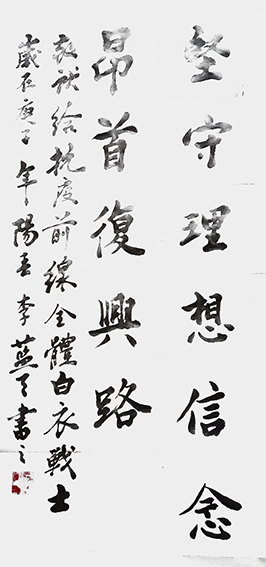 堅守理想信念
昂首復興路
敬献给抗疫前線全體白衣戰士
歲在庚子年陽春李蓝天書之